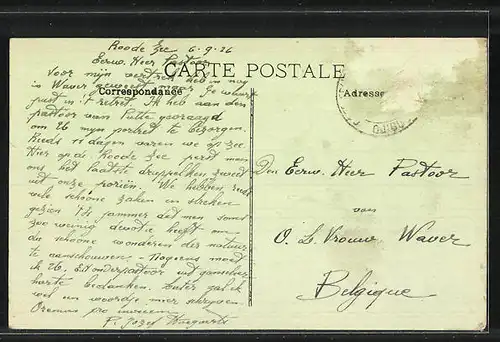 Roode Zee 6-9-26
Eerw. Heer Pastoor
CARTE POSTALE
Correspondance
Adresse
Voor mijn vertrek heb ik nog
in Waver geweest maar Ge waart
juist in 't retret. Ik heb aan den
pastoor van Putte gevraagd
om U mijn portret te bezorgen.
Reeds 11 dagen varen we op zee.
Hier op de Roode Zee perst men
ons het laatste druppelken zweet
uit onze poriën. We hebben reeds
vele schoone zaken en streken
gezien. 't Is jammer dat men soms
zoo weinig devotie heeft om
de schoone wonderen der natuur
te aanschouwen. Nogeens moet
ik U E. H onderpastoor uit ganscher
harte bedanken. Later zal ik
wel een woordje meer schrijven.
Oremus pro invicem
P. Jozef
Den Eerw. Heer Pastoor
van
O. L. Vrouw. Waver
Belgique
DJIBOUTI